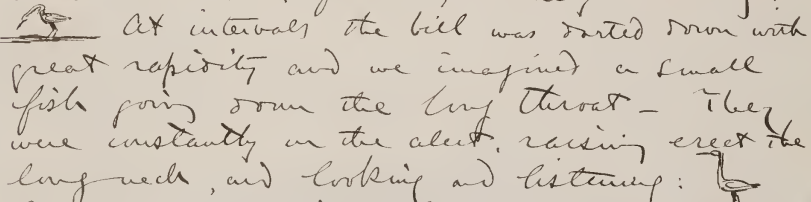 At intervals the bill was darted down with
great rapidity and we imagined a small
fish going down the long throat – They
were constantly on the alert, raising erect the
long neck, and looking and listening: